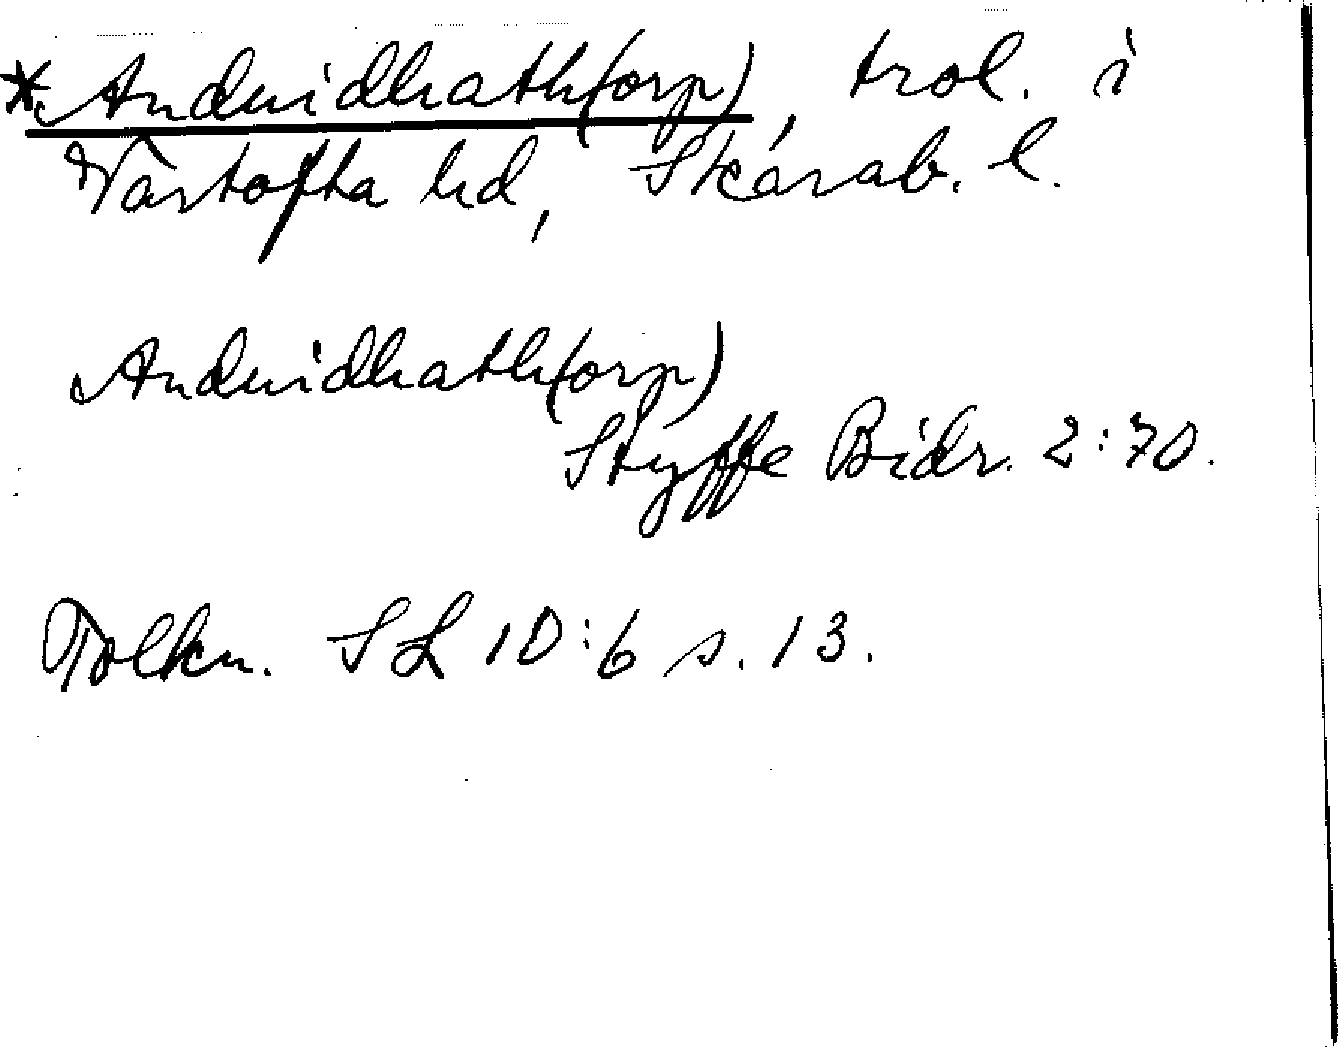 *Anduidhath(orp), trol. i
Vartofta hd, Skarab. l.
Anduidhath(orp)
Styffe Bidr. 2:70.
Tolkn. SL 10:6 s. 13.